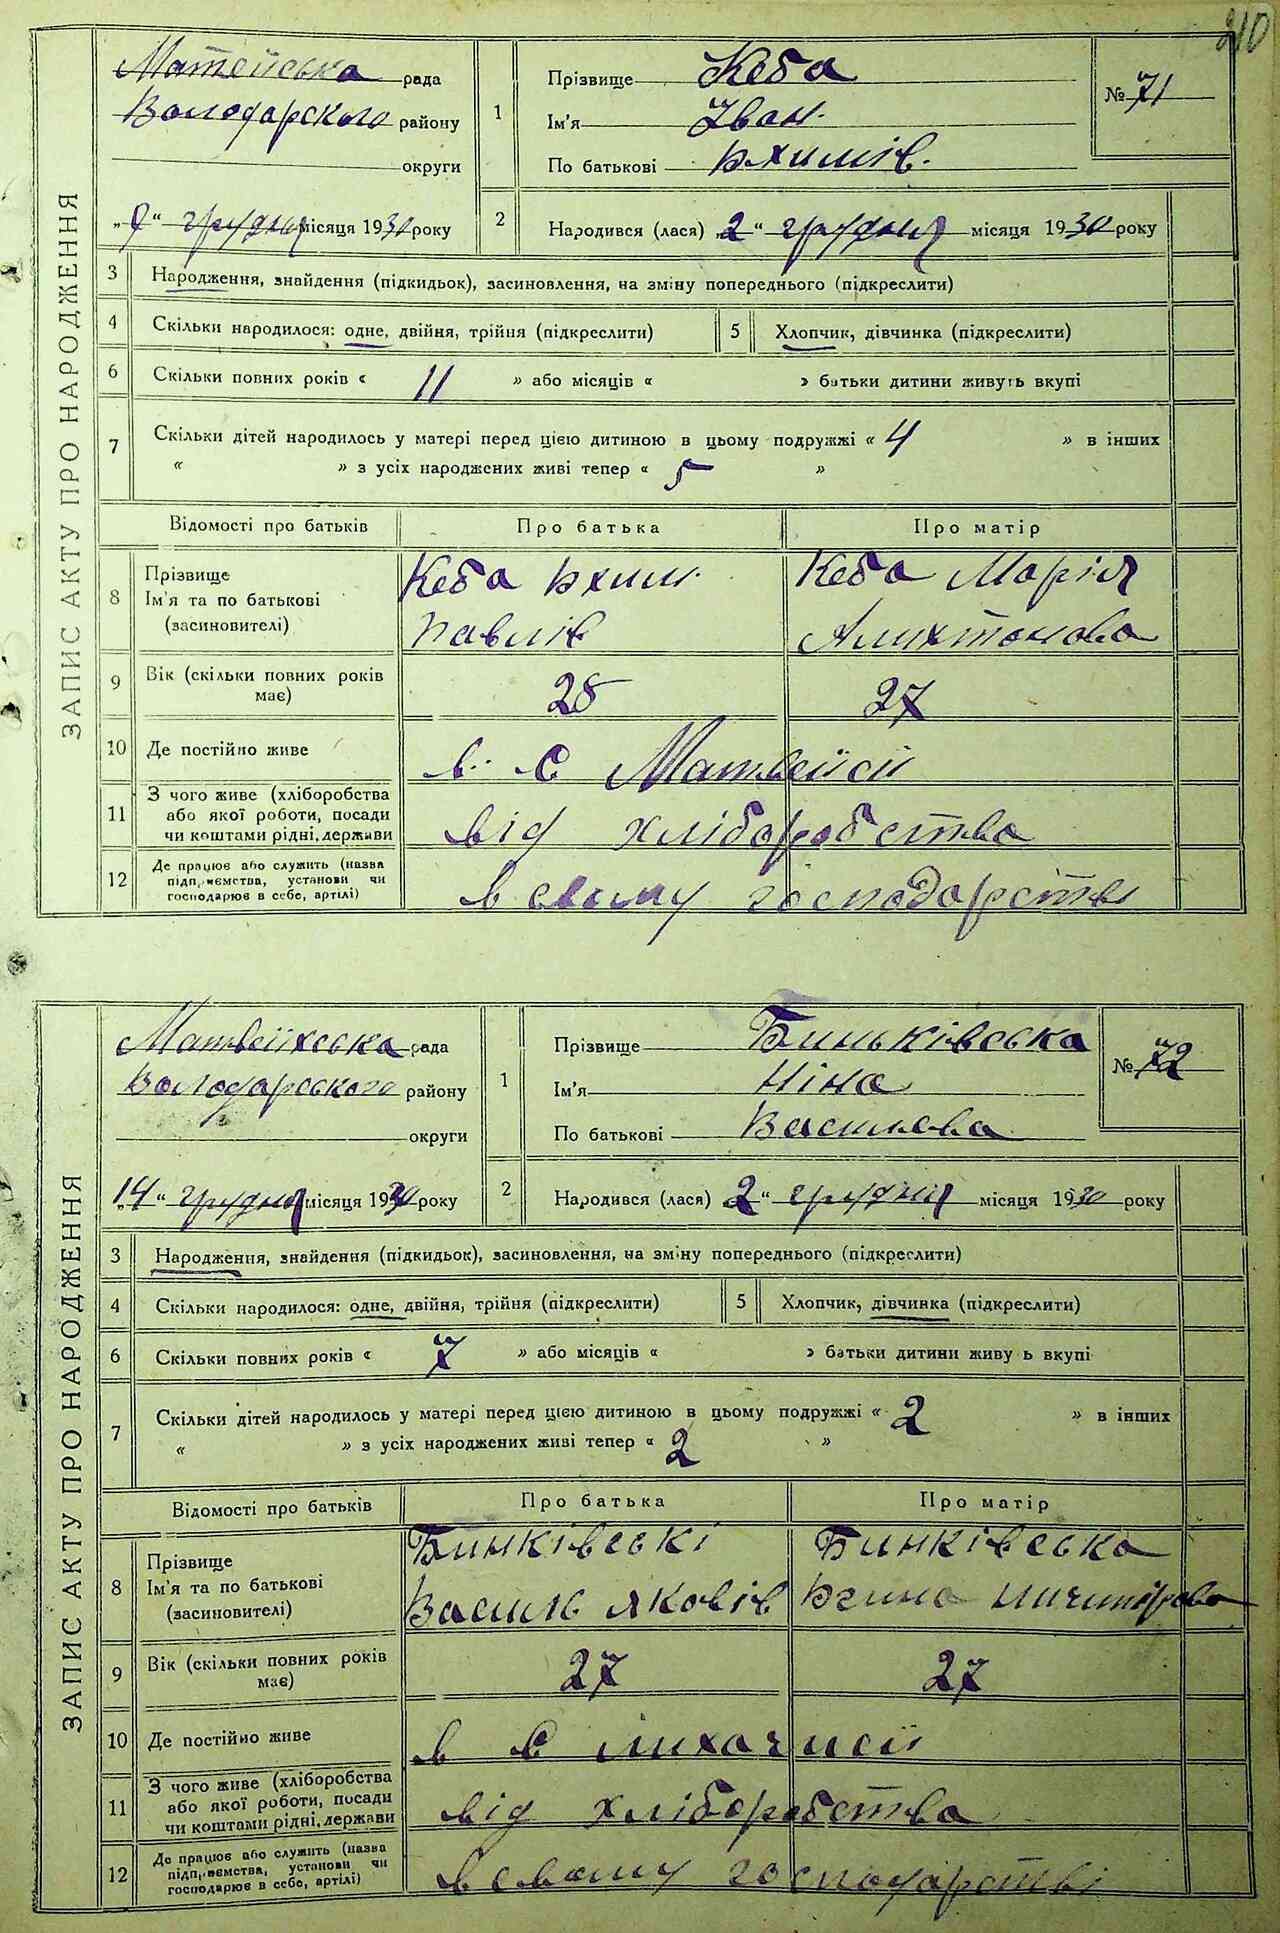 210
ЗАПИС АКТУ ПРО НАРОДЖЕННЯ
Матейська рада
Володарского району
округи
1
Прізвище Кеба
Ім'я Іван.
По батькові Юхимів.
№ 71
„9“ грудня місяця 1930 року
2
Народився (лася) „2“ грудня місяця 1930 року
3 Народження, знайдення (підкидьок), засиновлення, на зміну попереднього (підкреслити)
4 Скільки народилося: одне, двійня, трійня (підкреслити) 5 Хлопчик, дівчинка (підкреслити)
6 Скільки повних років « 11 » або місяців « » батьки дитини живуть вкупі
7 Скільки дітей народилось у матері перед цією дитиною в цьому подружжі « 4 » в інших
« » з усіх народжених живі тепер « 5 »
Відомості про батьків Про батька Про матір
8 Прізвище
Ім'я та по батькові
(засиновителі)
Кеба Юхим
Павлів
Кеба Марія
9 Вік (скільки повних років
має)
28 27
10 Де постійно живе в с
11 З чого живе (хліборобства
або якої роботи, посади
чи коштами рідні, держави
від хліборобства
12 Де працює або служить (назва
підприємства, установи чи
господарює в себе, артілі)
в свому господарстві
ЗАПИС АКТУ ПРО НАРОДЖЕННЯ
Матвеїхська рада
Володарського району
округи
1
Прізвище Биньківська
Ім'я Ніна
По батькові Василева
№ 72
„14“ грудня місяця 1930 року
2
Народився (лася) 2“ грудня місяця 1930 року
3 Народження, знайдення (підкидьок), засиновлення, на зміну попереднього (підкреслити)
4 Скільки народилося: одне, двійня, трійня (підкреслити) 5 Хлопчик, дівчинка (підкреслити)
6 Скільки повних років « 7 » або місяців « » батьки дитини живу ь вкупі
7 Скільки дітей народилось у матері перед цією дитиною в цьому подружжі « 2 » в інших
« » з усіх народжених живі тепер « 2 »
Відомості про батьків Про батька Про матір
8 Прізвище
Ім'я та по батькові
(засиновителі)
Бинківські
Василь Яковів
Бинківська
9 Вік (скільки повних років
має)
27 27
10 Де постійно живе в с
11 З чого живе (хліборобства
або якої роботи, посади
чи коштами рідні, держави
від хліборобства
12 Де працює або служить (назва
підприємства, установи чи
господарює в себе, артілі)
в свому господарстві